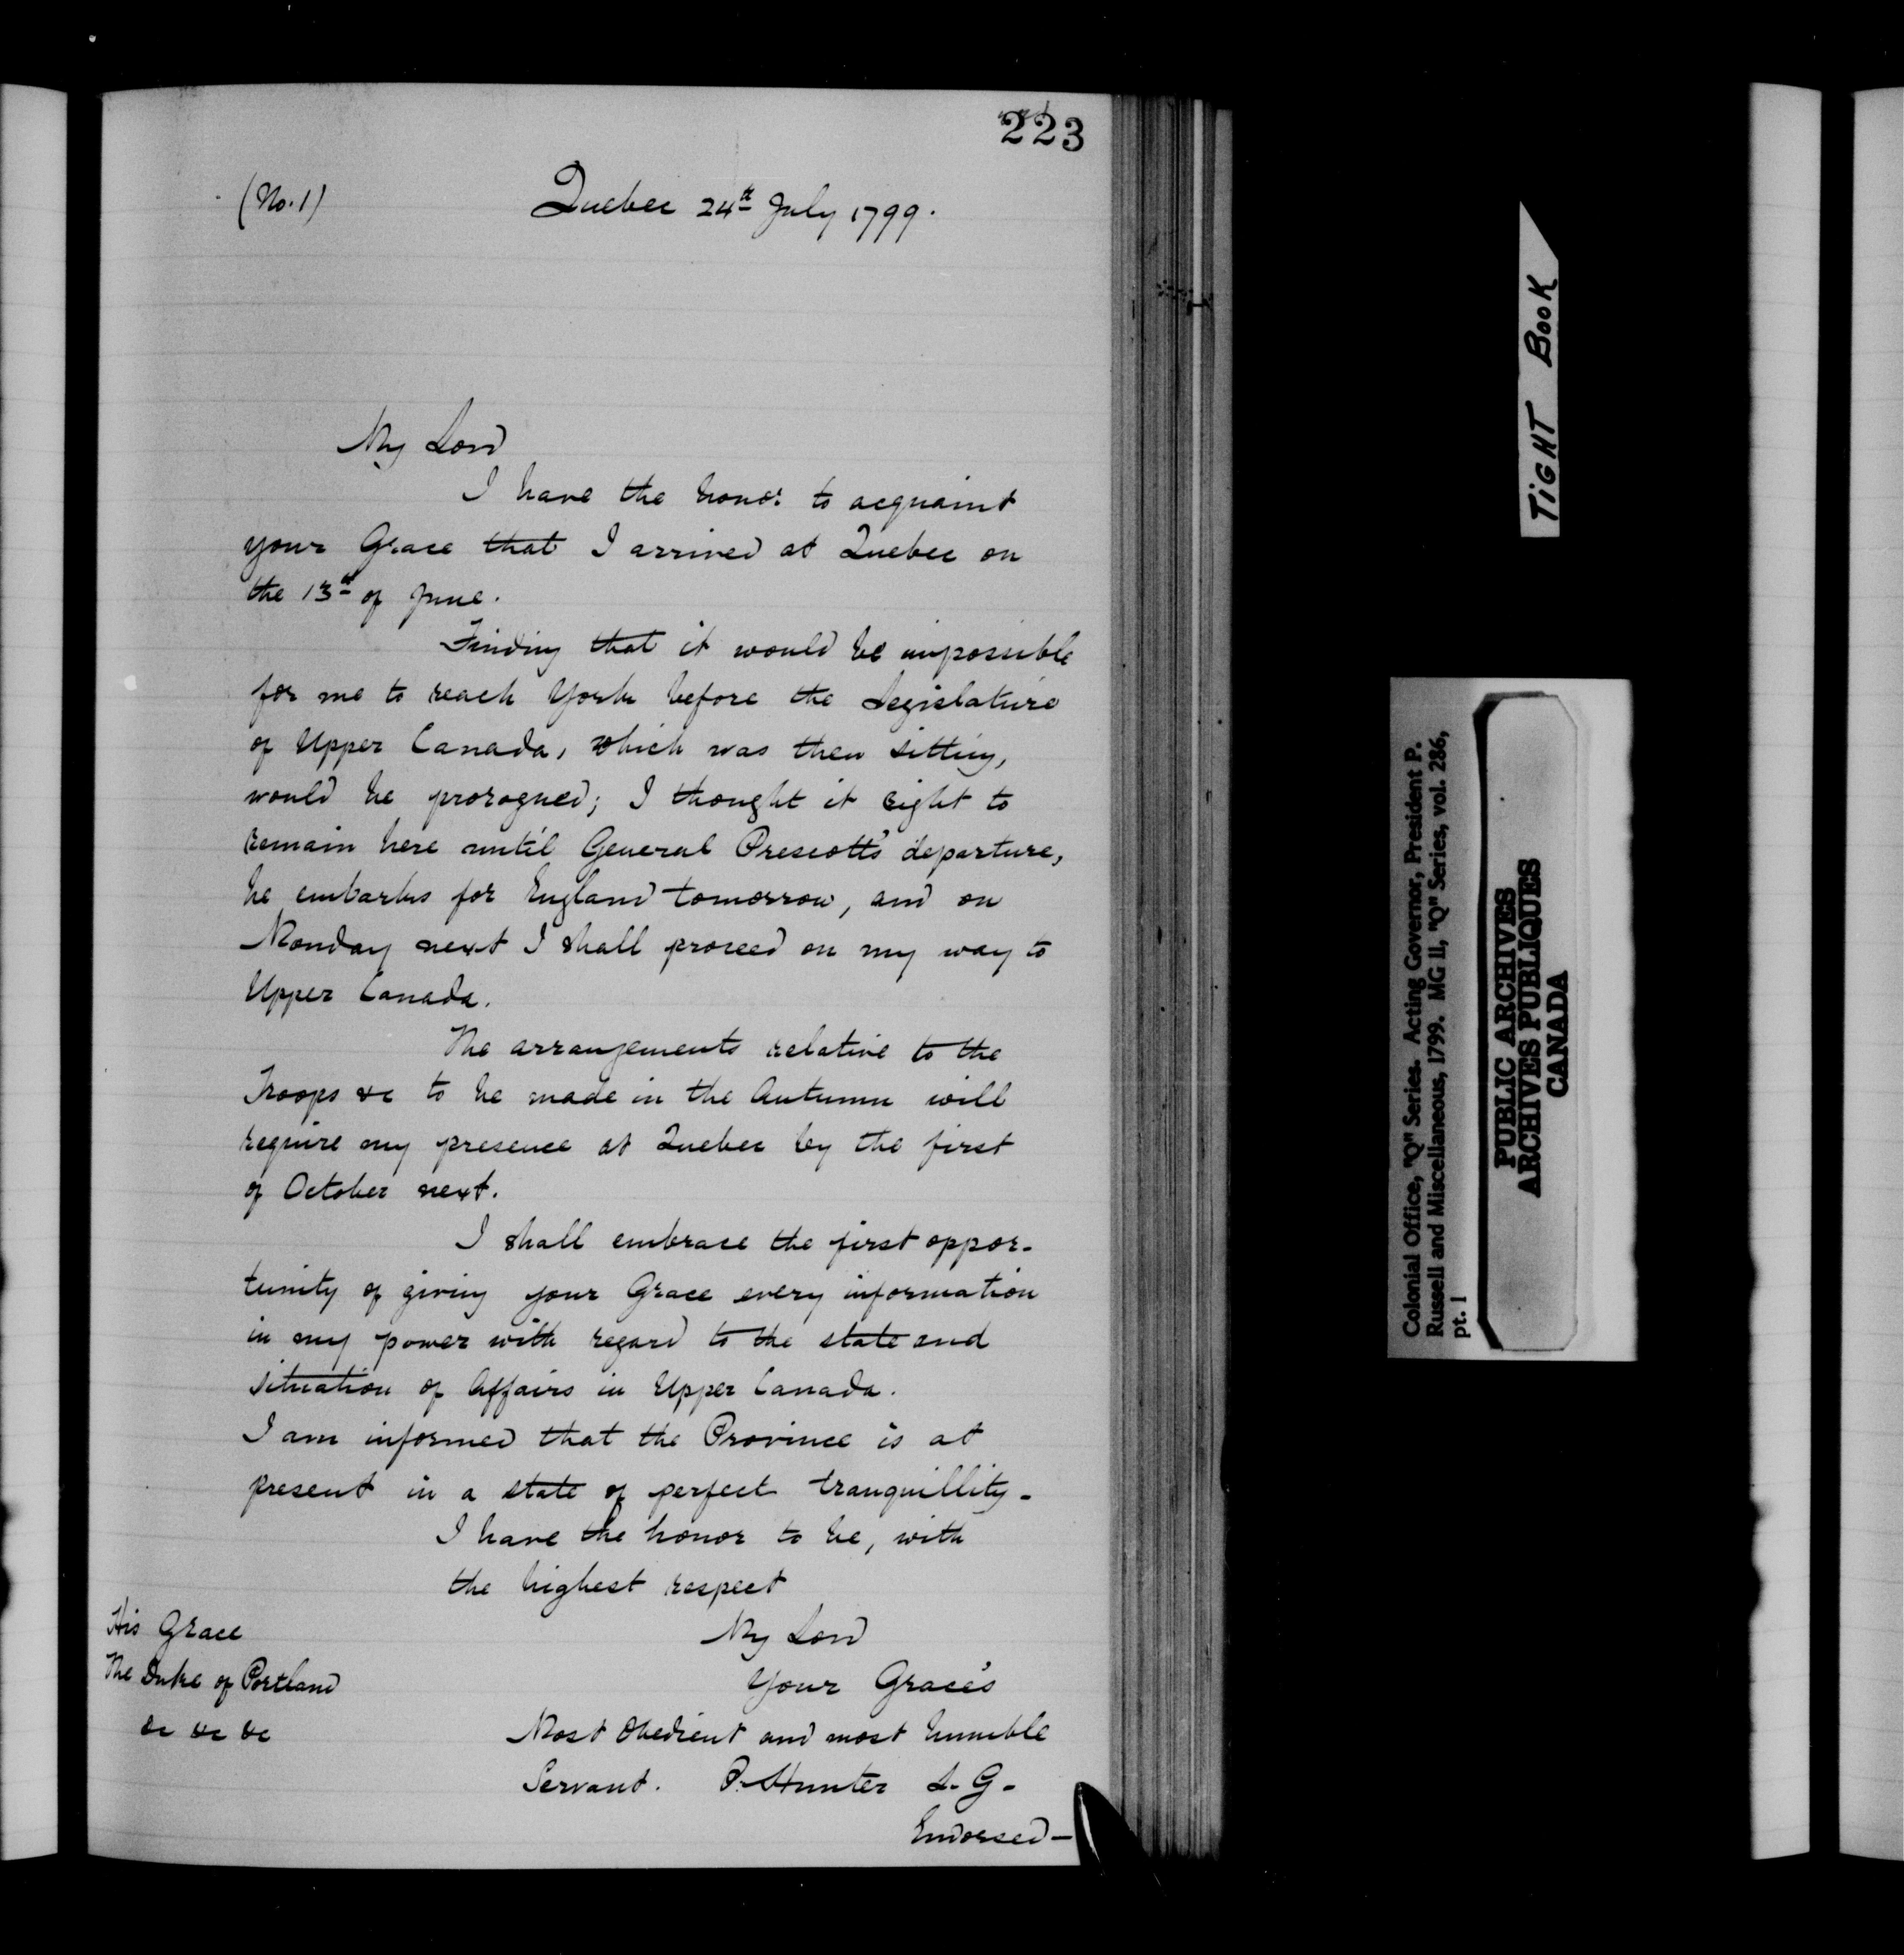 223
(No. 1)
Quebec 24th July 1799.
My Lord
I have the honor to acquaint
your Grace that I arrived at Quebec on
the 13th of June.
Finding that it would be impossible
for me to reach York before the Legislature
of Upper Canada, which was then sitting,
would be prorogued; I thought it right to
remain here until General Prescott's departure,
he embarks for England tomorrow, and on
Monday next I shall proceed on my way to
Upper Canada.
The arrangements relative to the
Troops &c to be made in the Autumn will
require my presence at Quebec by the first
of October next.
I shall embrace the first oppor-
tunity of giving your Grace every information
in my power with regard to the state and
situation of Affairs in Upper Canada.
I am informed that the Province is at
present in a state of perfect tranquillity-
I have the honor to be, with
the highest respect
My Lord
Your Grace's
Most Obedient and most humble
Servant. P. Hunter L. G.
Endorsed-
His Grace
The Duke of Portland
&c &c &c
TIGHT BOOK
Colonial Office, "Q" Series. Acting Governor, President P.
Russell and Miscellaneous, 1799. MG 11, "Q" Series, vol. 286,
pt. 1
PUBLIC ARCHIVES
ARCHIVES PUBLIQUES
CANADA